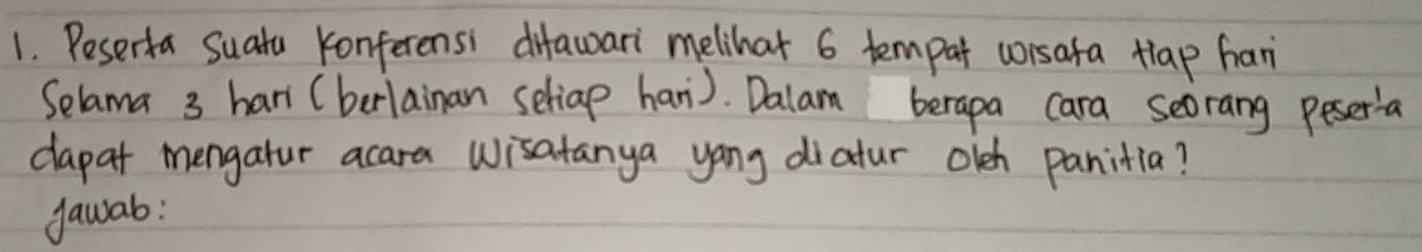 1. Peserta suatu konferensi ditawari melihat 6 tempat wisata tiap hari
Selama 3 hari (berlainan setiap hari). Dalam berapa cara seorang peserta
dapat mengatur acara wisatanya yang diatur oleh panitia?
Jawab: